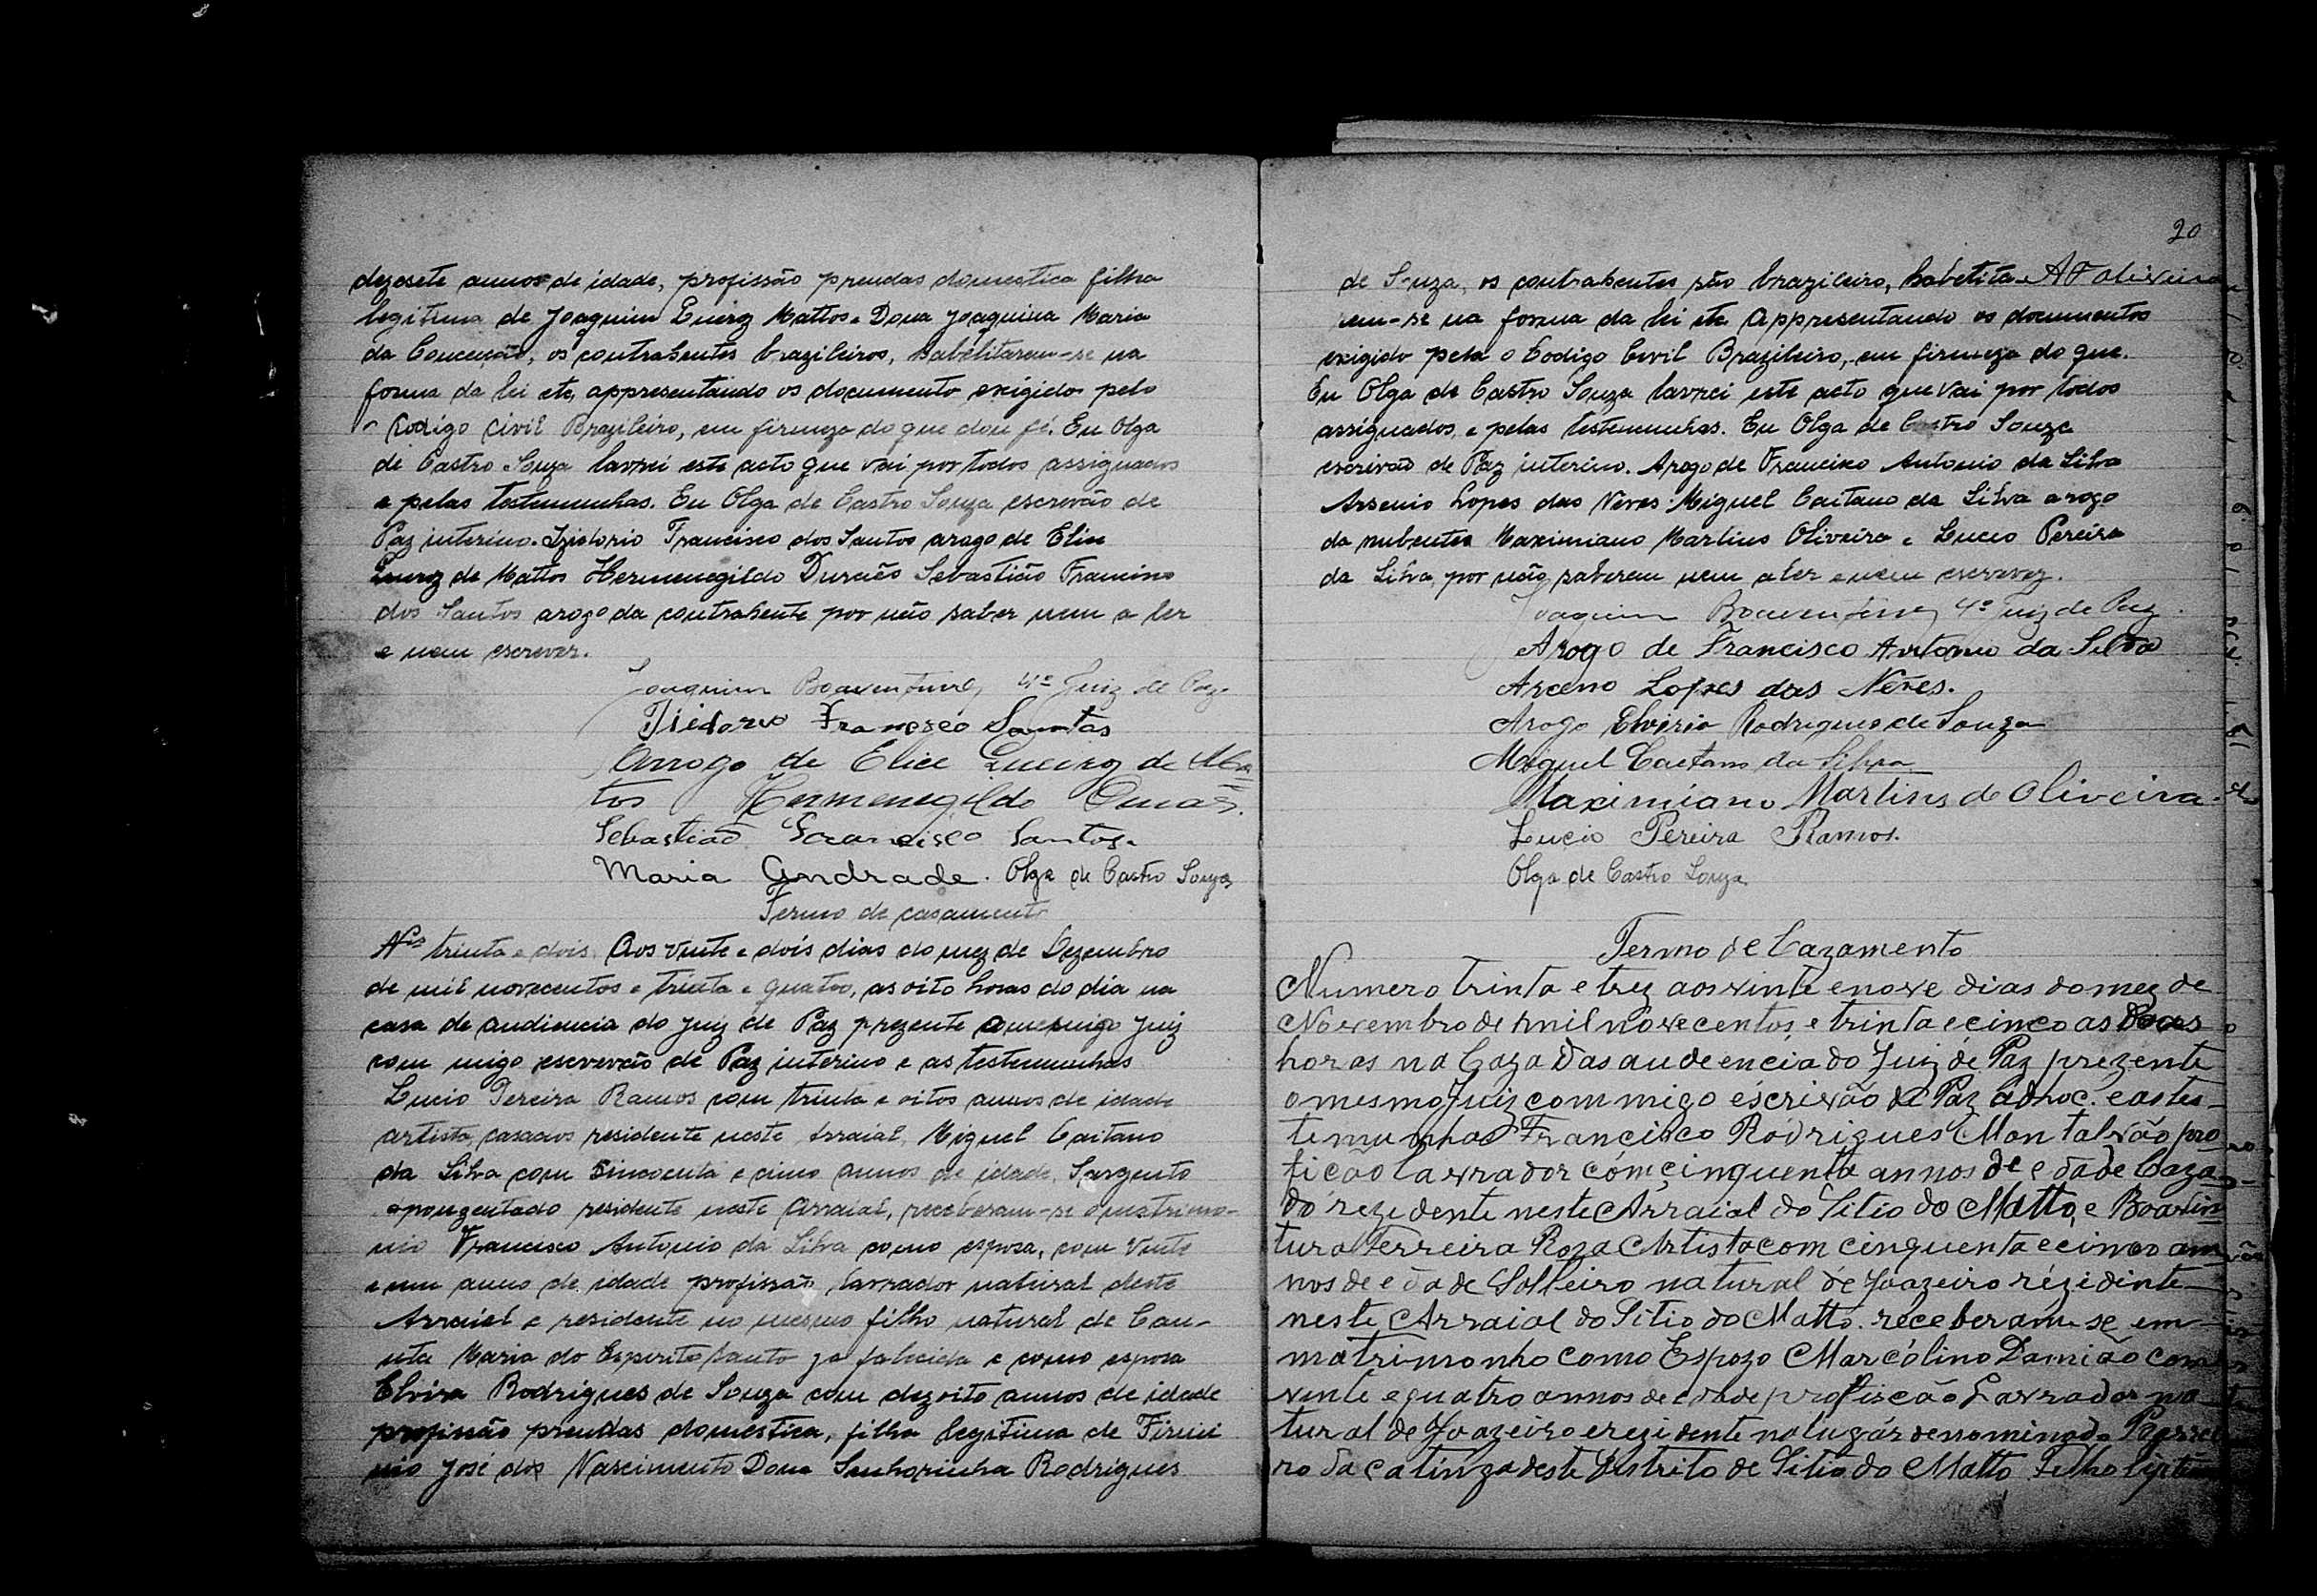 dezesete annos de idade, profissão prendas domestica filha
legitima de Joaquim Queroz Mattos e Dona Joaquina Maria
da Conceição, os contrahentes brazileiros, habelitarem-se na
forma da lei etc, appresentando os documento exigidos pelo
o Codigo Civil Brazileiro, em firmeza do que dou fé. Eu Olga
de Castro Souza lavrei este acto que vai por todos assignados
e pelas testemunhas. Eu Olga de Castro Souza escrevão de
Paz interino. Izidorio Francisco dos Santos arogo de Elice
Queroz de Mattos Hermenegildo Durães Sebastião Francino
dos Santos arogo da contrahente por não saber nem a ler
e nem escrever.
Joaquim Boaventura, 4º Juiz de Paz.
Francisco Santos
Arrogo de Elice Queiroz de Ma
tos Hermenegildo
Sebastião Francisco Santos.
Maria Andrade. Olga de Castro Souza
Termo de casamento
Nº trinta e dois. Aos vinte e dois dias do mez de Dezembro
de mil novecentos e trinta e quatro, as oito horas do dia na
casa de audiencia do Juiz de Paz prezente o Juiz
com migo escrevão de Paz interino e as testemunhas
Lucio Pereira Ramos com trinta e oitos annos de idade
artista, casados residente neste Arraial, Miguel Caitano
da Silva com Sincoenta e cinco annos de idade, Sargento
apouzentado residente neste Arraial, receberam-se o matrimo-
nio Francisco Antonio da Silva como esposa, com vinte
e um anno de idade profissão lavrador natural deste
Arraial e residente no mesmo filho natural de Can-
uta Maria do Esperito Santo ja falecida e como esposa
Elvira Rodrigues de Souza com dezoito annos de idade
profissão prendas domestica, filha legitima de Firmi
nio José dos Nascimento Dona Senhorinha Rodrigues
20
de Souza, os contrahentes são brazileiro, habelita- A F Oliveira
rem-se na forma da lei etc Appresentando os documentos
exigido pela o Codigo Cevil Brazileiro, em firmeza do que.
Eu Olga de Castro Souza lavrei este acto que vai por todos
assignados e pelas testemunhas. Eu Olga de Castro Souza
escrivão de Paz interino. Arogo de Francisco Antonio da Silva
Arsenio Lopes das Neves. Miguel Caitano da Silva arogo
da nubentes Maximiano Martins Oliveira e Lucio Pereira
da Silva, por não saberem nem a ler e nem escrever.
Joaquim Boaventura, 4º Juiz de Paz.
Arogo de Francisco Antonio da Silva
Arceno Lopes das Neves.
Arogo Elviria Rodrigues de Souza
Miguel Caetano da Silva
Maximiano Martins de Oliveira.
Lucio Pereira Ramos.
Olga de Castro Souza
Termo de Cazamento
Numero trinta e trez aos vinte e nove dias do mez de
Novembro de hmil novecentos e trinta e cinco as doas
horas na Caza das audeencia do Juiz de Paz prezente
o mesmo Juiz commigo escrivão de Paz adhoc. e as tes-
temunhas Francisco Rodrigues Montalvão pro
ficão lavrador com cinquenta annos de edade Caza
do rezidente neste Arraial do Sitio do Matto, e Boavin
tura Ferreira Roza Artista com cinquenta e cinco an
nos de edade Solteiro natural de Joazeiro rezidinte
neste Arraial do Sitio do Matto. receberam-se em
matrimonho como Espozo Marcólino Damião com
vinte e quatro annos de edade profiscão Lavrador na
tural de Joazeiro e rezidente no lugár denominado
ro da catinga deste Distrito de Sitio do Matto Filho